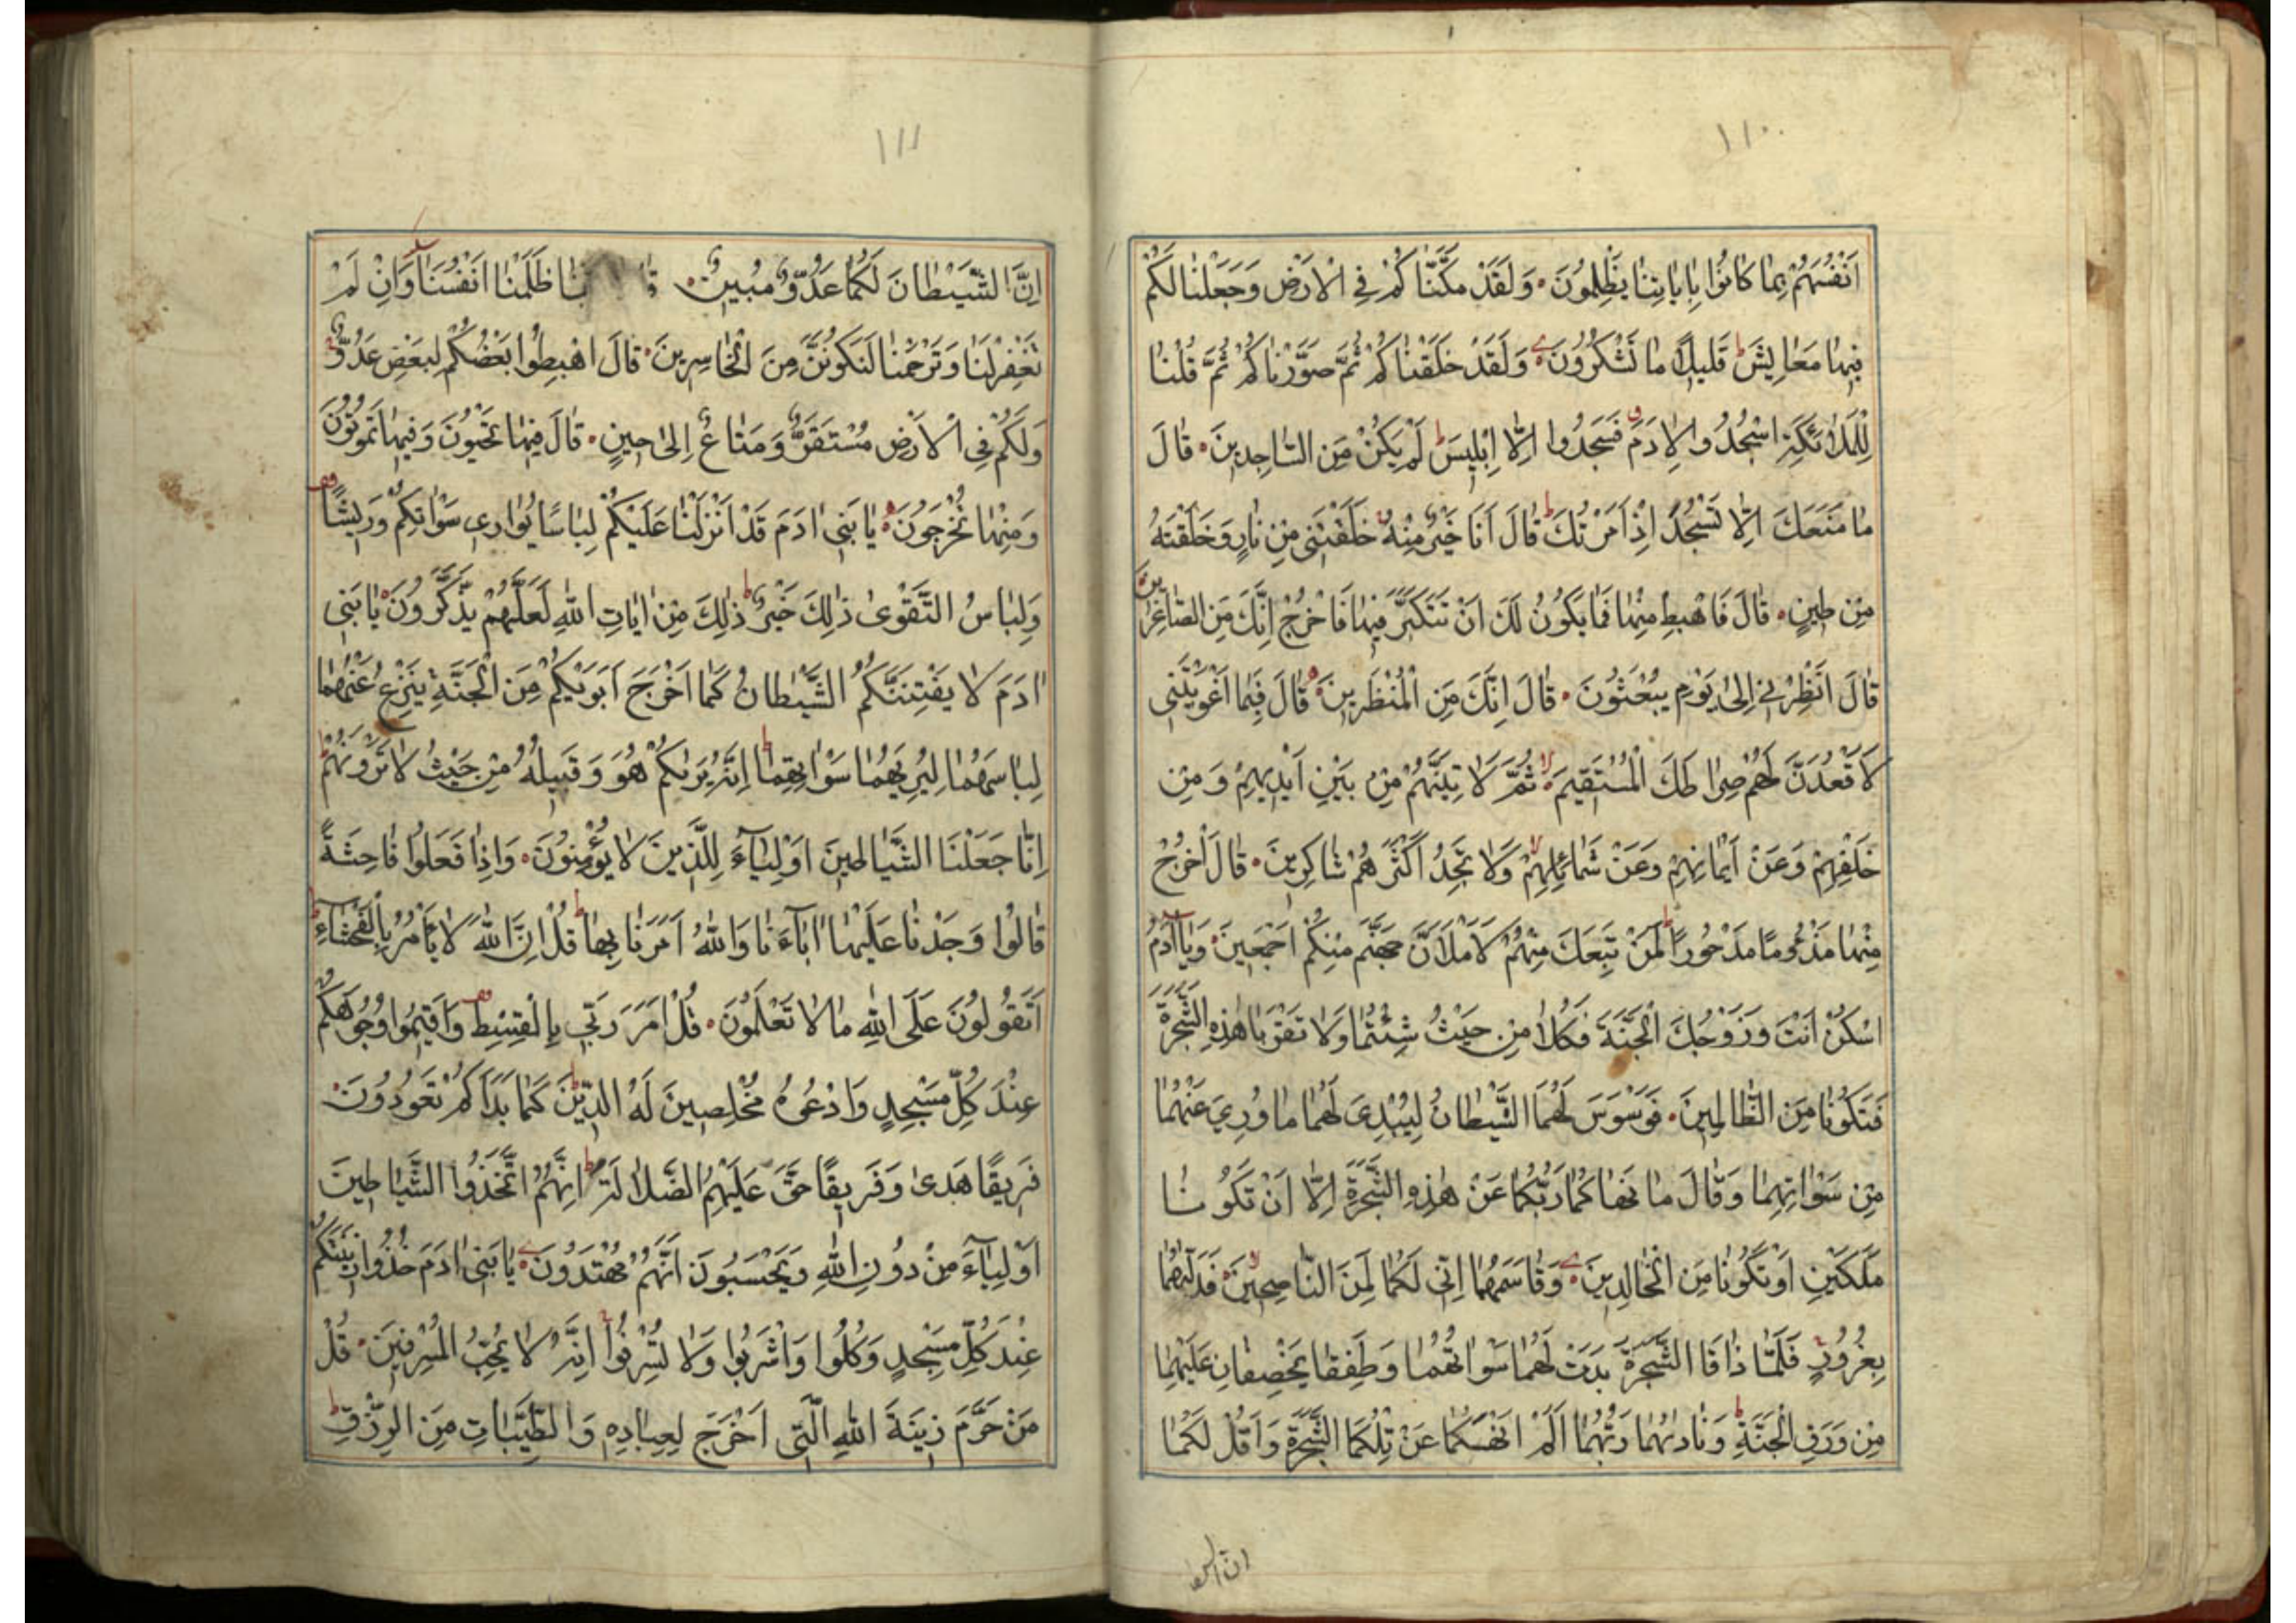 ١١٠
اَنْفُسَهُمْ بِمَا كَانُوا بِاٰيَاتِنَا يَظْلِمُونَ وَلَقَدْ مَكَّنَّاكُمْ فِي الْاَرْضِ وَجَعَلْنَا لَكُمْ
فِيهَا مَعَايِشَ ط قَلِيلًا مَا تَشْكُرُونَ وَلَقَدْ خَلَقْنَاكُمْ ثُمَّ صَوَّرْنَاكُمْ ثُمَّ قُلْنَا
لِلْمَلٰئِكَةِ اسْجُدُوا لِاٰدَمَ فَسَجَدُوا اِلَّا اِبْلِيسَ ط لَمْ يَكُنْ مِنَ السَّاجِدِينَ قَالَ
مَا مَنَعَكَ اَلَّا تَسْجُدَ اِذْ اَمَرْتُكَ ط قَالَ اَنَا خَيْرٌ مِنْهُ خَلَقْتَنِي مِنْ نَارٍ وَخَلَقْتَهُ
مِنْ طِينٍ قَالَ فَاهْبِطْ مِنْهَا فَمَا يَكُونُ لَكَ اَنْ تَتَكَبَّرَ فِيهَا فَاخْرُجْ اِنَّكَ مِنَ الصَّاغِرِينَ
قَالَ اَنْظِرْنِي اِلٰى يَوْمِ يُبْعَثُونَ قَالَ اِنَّكَ مِنَ الْمُنْظَرِينَ قَالَ فَبِمَا اَغْوَيْتَنِي
لَاَقْعُدَنَّ لَهُمْ صِرَاطَكَ الْمُسْتَقِيمَ لا ثُمَّ لَاٰتِيَنَّهُمْ مِنْ بَيْنِ اَيْدِيهِمْ وَمِنْ
خَلْفِهِمْ وَعَنْ اَيْمَانِهِمْ وَعَنْ شَمَائِلِهِمْ لا وَلَا تَجِدُ اَكْثَرَهُمْ شَاكِرِينَ قَالَ اخْرُجْ
مِنْهَا مَذْءُومًا مَدْحُورًا ط لَمَنْ تَبِعَكَ مِنْهُمْ لَاَمْلَاَنَّ جَهَنَّمَ مِنْكُمْ اَجْمَعِينَ وَيَا اٰدَمُ
اسْكُنْ اَنْتَ وَزَوْجُكَ الْجَنَّةَ فَكُلَا مِنْ حَيْثُ شِئْتُمَا وَلَا تَقْرَبَا هٰذِهِ الشَّجَرَةَ
فَتَكُونَا مِنَ الظَّالِمِينَ فَوَسْوَسَ لَهُمَا الشَّيْطَانُ لِيُبْدِيَ لَهُمَا مَا وُرِيَ عَنْهُمَا
مِنْ سَوْاٰتِهِمَا وَقَالَ مَا نَهَاكُمَا رَبُّكُمَا عَنْ هٰذِهِ الشَّجَرَةِ اِلَّا اَنْ تَكُونَا
مَلَكَيْنِ اَوْ تَكُونَا مِنَ الْخَالِدِينَ وَقَاسَمَهُمَا اِنِّي لَكُمَا لَمِنَ النَّاصِحِينَ لا فَدَلّٰهُمَا
بِغُرُورٍ فَلَمَّا ذَاقَا الشَّجَرَةَ بَدَتْ لَهُمَا سَوْاٰتُهُمَا وَطَفِقَا يَخْصِفَانِ عَلَيْهِمَا
مِنْ وَرَقِ الْجَنَّةِ ط وَنَادٰىهُمَا رَبُّهُمَا اَلَمْ اَنْهَكُمَا عَنْ تِلْكُمَا الشَّجَرَةِ وَاَقُلْ لَكُمَا
١١١
اِنَّ الشَّيْطَانَ لَكُمَا عَدُوٌّ مُبِينٌ ظَلَمْنَا اَنْفُسَنَا وَاِنْ لَمْ
تَغْفِرْ لَنَا وَتَرْحَمْنَا لَنَكُونَنَّ مِنَ الْخَاسِرِينَ قَالَ اهْبِطُوا بَعْضُكُمْ لِبَعْضٍ عَدُوٌّ
وَلَكُمْ فِي الْاَرْضِ مُسْتَقَرٌّ وَمَتَاعٌ اِلٰى حِينٍ قَالَ فِيهَا تَحْيَوْنَ وَفِيهَا تَمُوتُونَ
وَمِنْهَا تُخْرَجُونَ يَا بَنِي اٰدَمَ قَدْ اَنْزَلْنَا عَلَيْكُمْ لِبَاسًا يُوَارِي سَوْاٰتِكُمْ وَرِيشًا
وَلِبَاسُ التَّقْوٰى ذٰلِكَ خَيْرٌ ط ذٰلِكَ مِنْ اٰيَاتِ اللّٰهِ لَعَلَّهُمْ يَذَّكَّرُونَ يَا بَنِي
اٰدَمَ لَا يَفْتِنَنَّكُمُ الشَّيْطَانُ كَمَا اَخْرَجَ اَبَوَيْكُمْ مِنَ الْجَنَّةِ يَنْزِعُ عَنْهُمَا
لِبَاسَهُمَا لِيُرِيَهُمَا سَوْاٰتِهِمَا ط اِنَّهُ يَرٰىكُمْ هُوَ وَقَبِيلُهُ مِنْ حَيْثُ لَا تَرَوْنَهُمْ ط
اِنَّا جَعَلْنَا الشَّيَاطِينَ اَوْلِيَاءَ لِلَّذِينَ لَا يُؤْمِنُونَ وَاِذَا فَعَلُوا فَاحِشَةً
قَالُوا وَجَدْنَا عَلَيْهَا اٰبَاءَنَا وَاللّٰهُ اَمَرَنَا بِهَا ط قُلْ اِنَّ اللّٰهَ لَا يَأْمُرُ بِالْفَحْشَاءِ ط
اَتَقُولُونَ عَلَى اللّٰهِ مَا لَا تَعْلَمُونَ قُلْ اَمَرَ رَبِّي بِالْقِسْطِ وَاَقِيمُوا وُجُوهَكُمْ
عِنْدَ كُلِّ مَسْجِدٍ وَادْعُوهُ مُخْلِصِينَ لَهُ الدِّينَ ط كَمَا بَدَاَكُمْ تَعُودُونَ
فَرِيقًا هَدٰى وَفَرِيقًا حَقَّ عَلَيْهِمُ الضَّلَالَةُ ط اِنَّهُمُ اتَّخَذُوا الشَّيَاطِينَ
اَوْلِيَاءَ مِنْ دُونِ اللّٰهِ وَيَحْسَبُونَ اَنَّهُمْ مُهْتَدُونَ يَا بَنِي اٰدَمَ خُذُوا زِينَتَكُمْ
عِنْدَ كُلِّ مَسْجِدٍ وَكُلُوا وَاشْرَبُوا وَلَا تُسْرِفُوا اِنَّهُ لَا يُحِبُّ الْمُسْرِفِينَ قُلْ
مَنْ حَرَّمَ زِينَةَ اللّٰهِ الَّتِي اَخْرَجَ لِعِبَادِهِ وَالطَّيِّبَاتِ مِنَ الرِّزْقِ ط